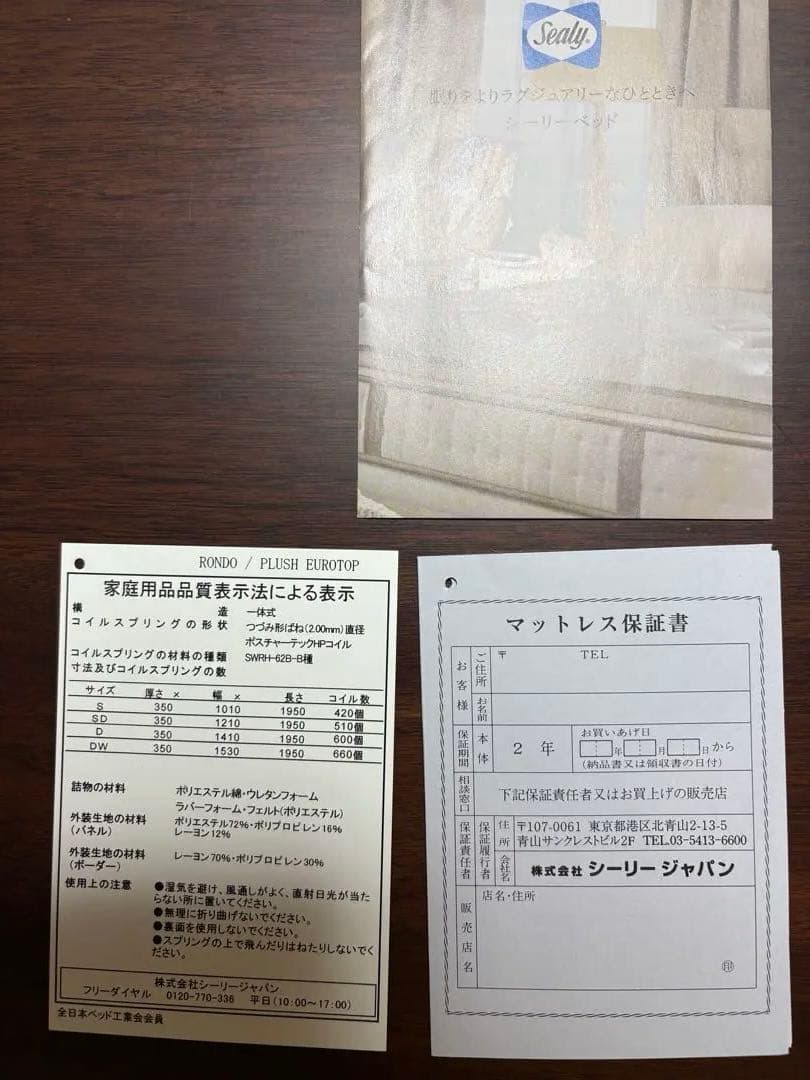 Sealy
眠りをよりラグジュアリーなひとときへ
シーリーベッド
RONDO / PLUSH EUROTOP
家庭用品品質表示法による表示
構造 一体式
コイルスプリングの形状 つづみ形ばね(2.00mm)直径
ポスチャーテックHPコイル
コイルスプリングの材料の種類 SWRH-62B-B種
寸法及びコイルスプリングの数
サイズ 厚さ × 幅 × 長さ コイル数
S 350 1010 1950 420個
SD 350 1210 1950 510個
D 350 1410 1950 600個
DW 350 1530 1950 660個
詰物の材料 ポリエステル綿・ウレタンフォーム
ラバーフォーム・フェルト(ポリエステル)
外装生地の材料 ポリエステル72%・ポリプロピレン16%
(パネル) レーヨン12%
外装生地の材料 レーヨン70%・ポリプロピレン30%
(ボーダー)
使用上の注意 ●湿気を避け、風通しがよく、直射日光が当た
らない所に置いてください。
●無理に折り曲げないでください。
●裏面を使用しないでください。
●スプリングの上で飛んだりはねたりしないでく
ださい。
株式会社シーリージャパン
フリーダイヤル 0120-770-336 平日(10:00~17:00)
全日本ベッド工業会会員
マットレス保証書
お客様
ご住所 〒 TEL
お名前
保証期間 本体 2年 お買いあげ日
年 月 日から
(納品書又は領収書の日付)
相談窓口 下記保証責任者又はお買上げの販売店
保証責任者 保証履行者 住所 〒107-0061 東京都港区北青山2-13-5
青山サンクレストビル2F TEL.03-5413-6600
会社名 株式会社 シーリー ジャパン
販売店名 店名・住所
印